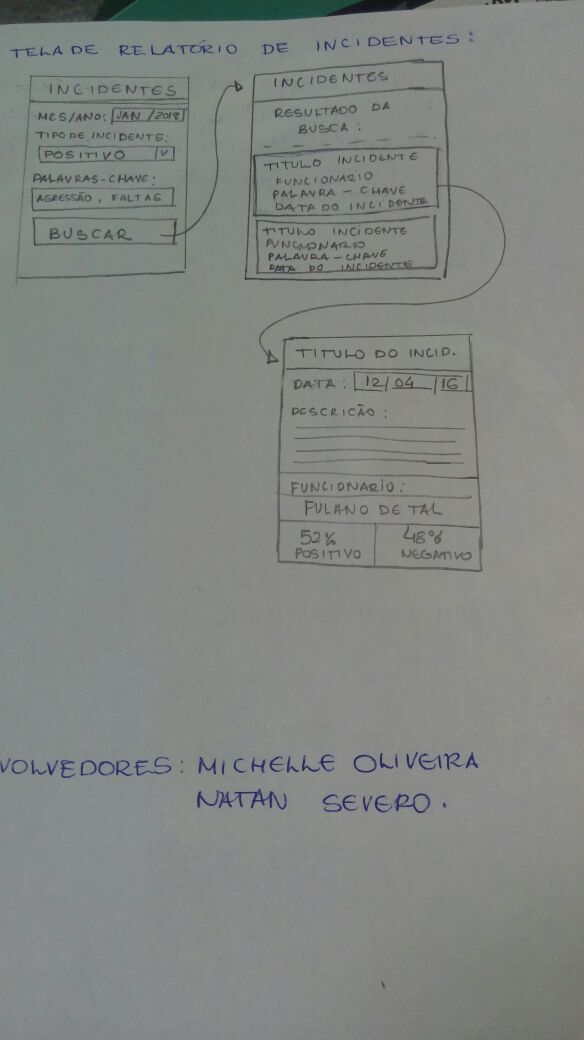 TELA DE RELATÓRIO DE INCIDENTES:
INCIDENTES
MES/ANO: JAN/2018
TIPO DE INCIDENTE:
POSITIVO V
PALAVRAS-CHAVE:
AGRESSÃO, FALTAS
BUSCAR
INCIDENTES
RESULTADO DA
BUSCA:
TITULO INCIDENTE
FUNCIONARIO
PALAVRA-CHAVE
DATA DO INCIDENTE
TITULO INCIDENTE
FUNCIONARIO
PALAVRA-CHAVE
DATA DO INCIDENTE
TITULO DO INCID.
DATA: 12/04/16
DESCRICÃO:
FUNCIONARIO:
FULANO DE TAL
52% 48%
POSITIVO NEGATIVO
VOLVEDORES: MICHELLE OLIVEIRA
NATAN SEVERO.